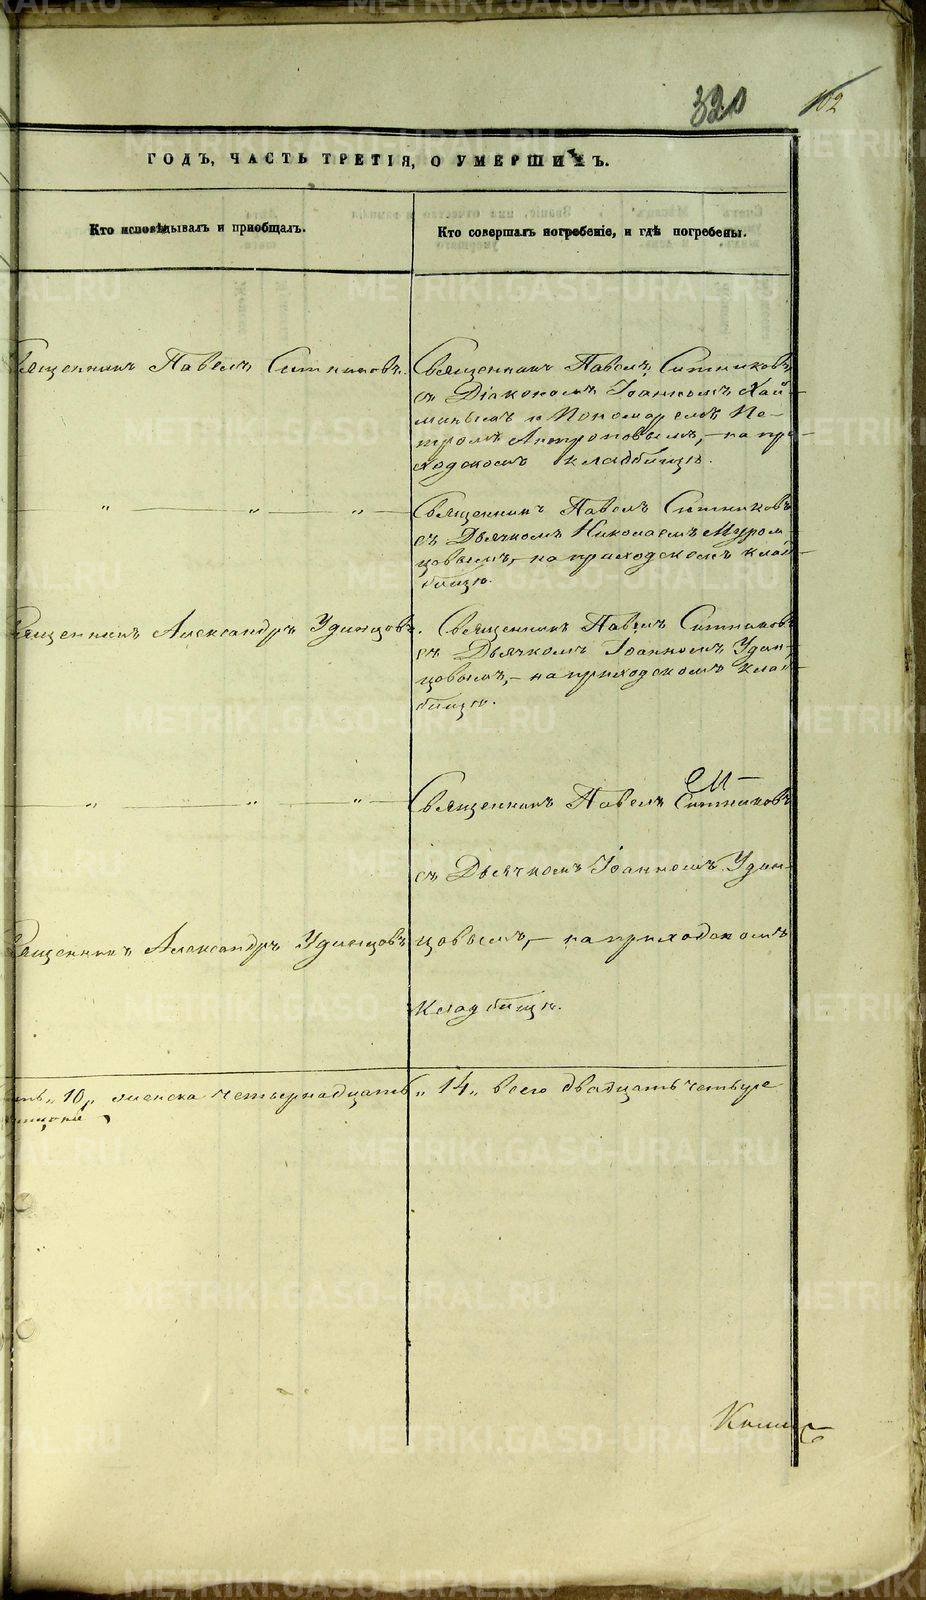 320 102
ГОДЪ, ЧАСТЬ ТРЕТІЯ, О УМЕРШИХЪ.
Кто исповѣдывалъ и приобщалъ.
Кто совершалъ погребеніе, и гдѣ погребены.
священникъ Павелъ Ситниковъ.
Священникъ Павелъ Ситниковъ
съ Діакономъ Іоанномъ Хай-
минымъ и Пономаремъ Пе-
тромъ Антроповымъ, - на при-
ходскомъ кладбищѣ.
" — " — " —
Священникъ Павелъ Ситниковъ
съ Дьячкомъ Николаемъ Муром-
цовымъ, - на приходскомъ клад-
бищѣ.
священникъ Александръ Удинцовъ.
Священникъ Павелъ Ситниковъ
съ Дьячкомъ Іоанномъ Удин-
цовымъ, - на приходскомъ клад-
бищѣ.
" — " — " —
Священникъ Павелъ Ситниковъ
съ Дьячкомъ Іоанномъ Удин-
священникъ Александръ Удинцовъ
цовымъ, - на приходскомъ
Кладбищѣ.
"10" женска четырнадцать "14" всего двадцать четыре
METRIKI.GASO-URAL.RU